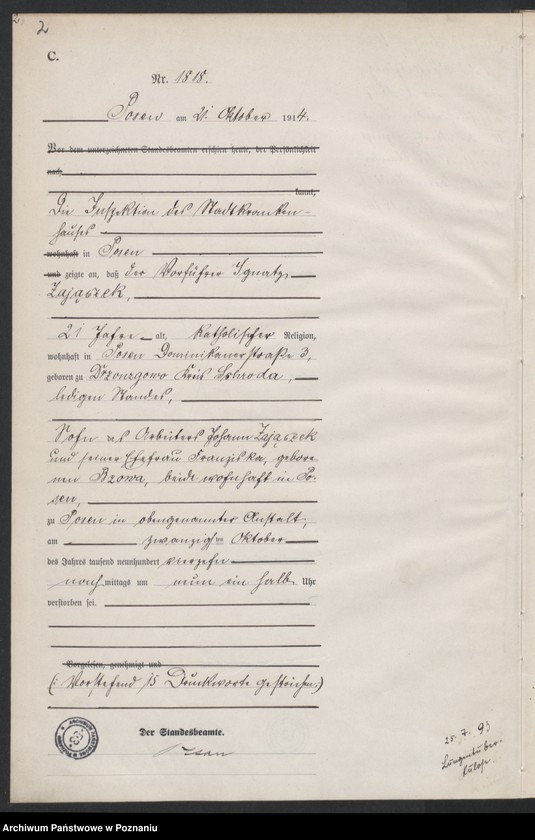 2
C.
Nr. 1818.
Posen am 21. Oktober 1914.
Vor dem unterzeichneten Standesbeamten erschien heute, der Persönlichkeit
nach
kannt,
Die Inspektion des Stadtkranken-
hauses
wohnhaft in Posen
und zeigte an, daß der Vorführer Ignatz
Zajączek,
21 Jahre alt, katholischer Religion,
wohnhaft in Posen Dominikanerstraße 3,
geboren zu Drzonzgowo Kreis Schroda,
ledigen Standes,
Sohn des Arbeiters Johann Zajączek
und seiner Ehefrau Franziska, gebore-
nen Bzowa, beide wohnhaft in Po-
sen,
zu Posen in obengenannter Anstalt,
am zwanzigsten Oktober
des Jahres tausend neunhundert vierzehn
nachmittags um neun ein halb Uhr
verstorben sei.
Vorgelesen, genehmigt und
(: Vorstehend 15 Druckworte gestrichen.)
Der Standesbeamte.
25. 7. 93
Lungentuber-
kulose
Archiwum Państwowe w Poznaniu